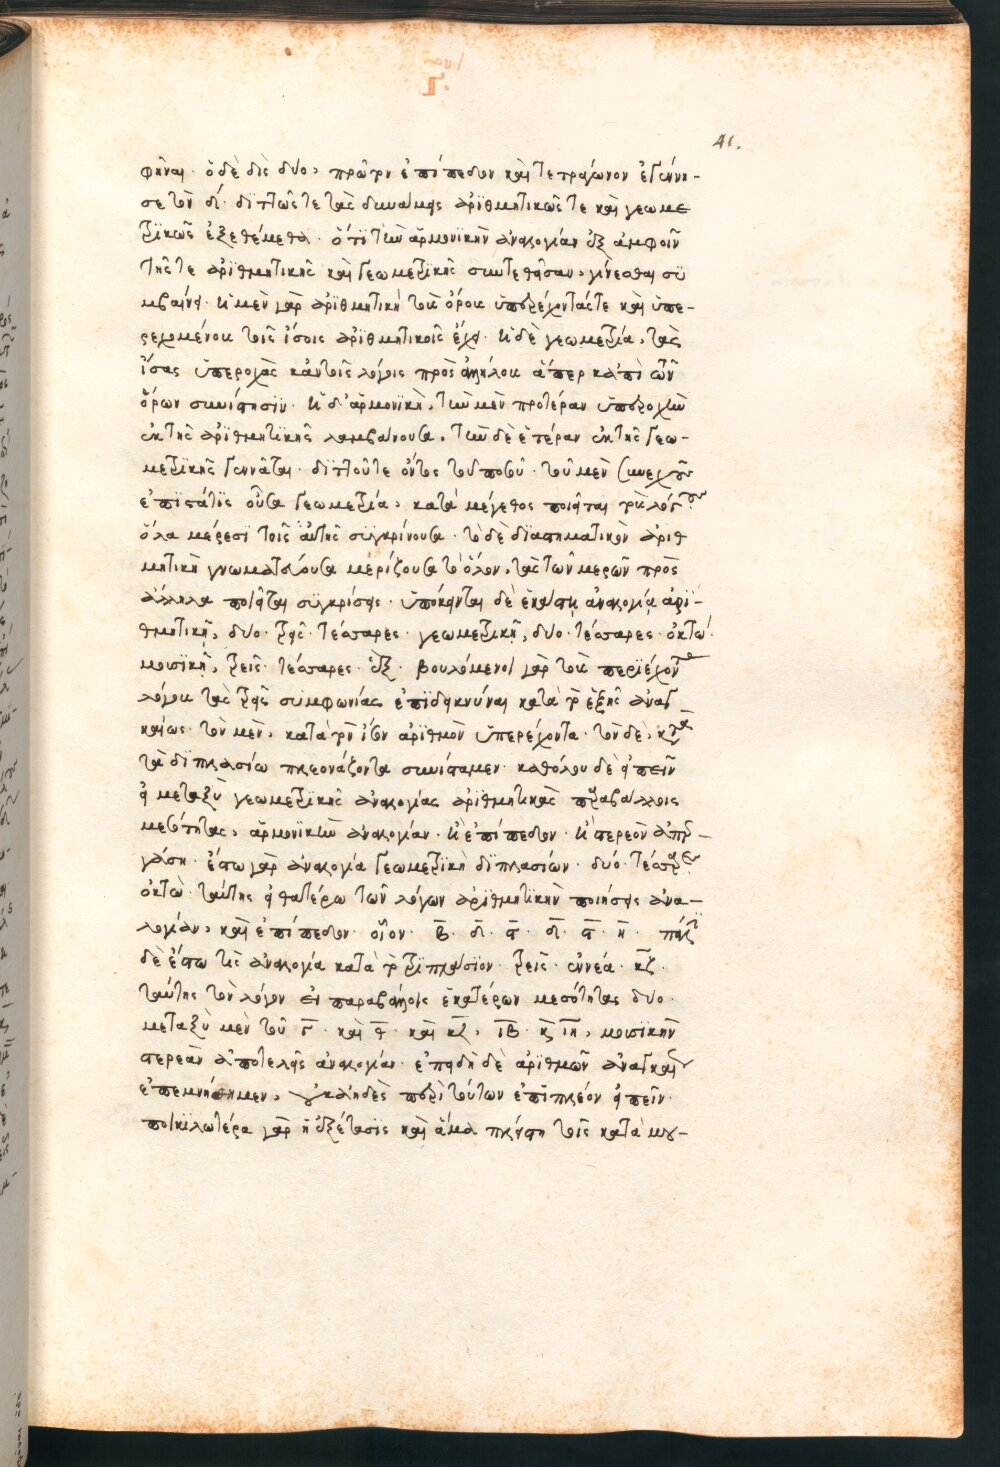 41.
φῆναι· ὁ δὲ δὶς δύο, πρῶτον ἐπίπεδον καὶ τετράγωνον ἐγέννη-
σε τὸν δ̅· διττῶς τε τὰς δυνάμεις ἀριθμητικῶς τε καὶ γεωμε
τρικῶς ἐξεθέμεθα· ὅτι τὴν ἁρμονικὴν ἀναλογίαν ἐξ ἀμφοῖν
τῆς τε ἀριθμητικῆς καὶ γεωμετρικῆς συντεθῆσαν, γίνεσθαι συ
μβαίνει· ἡ μὲν γὰρ ἀριθμητικὴ τοὺς ὅρους ὑπερέχοντάς τε καὶ ὑπε-
ρεχομένους τοῖς ἴσοις ἀριθμητικοῖς ἔχει· ἡ δὲ γεωμετρία, τὰς
ἴσας ὑπεροχὰς κἀν τοῖς λόγοις πρὸς ἀλλήλους ἅπερ κἀπὶ τῶν
ὅρων συνίστησιν· ἡ δ' ἁρμονικὴ, τὴν μὲν προτέραν ὑπεροχὴν
ἐκ τῆς ἀριθμητικῆς λαμβάνουσα, τὴν δὲ ἑτέραν ἐκ τῆς γεω-
μετρικῆς γεννᾶται· διττοῦ τε ὄντος τοῦ ποσοῦ· τοῦ μὲν συνεχοῦς
ἐπιστάτις οὖσα γεωμετρία, κατὰ μέγεθος ποιεῖται τοὺς λόγους
ὅλα μέρεσι τοῖς αὐτῆς συγκρίνουσα· τὸ δὲ διαστηματικὸν ἀριθ
μητικὴ γνωματεύουσα μερίζουσα τὸ ὅλον, τὰς τῶν μερῶν πρὸς
ἄλληλα ποιεῖται συγκρίσεις· ὑπόκεινται δὲ ἑκάστῃ ἀναλογίᾳ ἀρι-
θμητικῇ, δύο· τρεῖς· τέσσαρες· γεωμετρικῇ, δύο· τέσσαρες· ὀκτώ·
μουσικῇ, τρεῖς· τέσσαρες· ἕξ· βουλόμενοι γὰρ τοὺς περιέχοντας
λόγους τὰς τρεῖς συμφωνίας ἐπιδεικνύναι κατὰ τὸ ἑξῆς ἀναγ
καίως· τὸν μὲν, κατὰ τὸν ἴσον ἀριθμὸν ὑπερέχοντα· τὸν δὲ, κατὰ
τὰ διπλασίω πλεονάζοντα συνίσταμεν· καθόλου δὲ εἰπεῖν
εἰ μεταξὺ γεωμετρικῆς ἀναλογίας ἀριθμητικὰς παραβάλλοις
μεσότητας, ἁρμονικὴν ἀναλογίαν· ἢ ἐπίπεδον· ἢ στερεὸν ἀπερ-
γάσῃ· ἔστω γὰρ ἀναλογία γεωμετρικὴ διπλασίων· δύο· τέσσαρες
ὀκτὼ· ταύτης εἰ θατέρω τῶν λόγων ἀριθμητικὴν ποιήσεις ἀνα-
λογίαν, καὶ ἐπίπεδον· οἷον· β̅· δ̅· ϛ̅· δ̅· ϛ̅· η̅· πάλιν
δὲ ἔστω τις ἀναλογία κατὰ τὸ τριπλάσιον· τρεῖς· ἐννέα· κζ̅·
ταύτης τὸν λόγον εἰ παραβάλλοις ἑκατέρων μεσότητας δύο·
μεταξὺ μὲν τοῦ γ̅· καὶ θ̅· καὶ κζ̅, ιβ̅· κ̣ ιη̅, μουσικὴν
στερεὰν ἀποτελεῖς ἀναλογίαν· ἐπειδὴ δὲ ἀριθμῶν ἀναγκαίων
ἐπεμνήσθημεν, οὐκ ἀηδὲς περὶ τούτων ἐπιπλέον εἰπεῖν·
ποικιλωτέρα γὰρ ἡ ἐξέτασις καὶ ἅμα πλείστη τοῖς κατὰ μου-